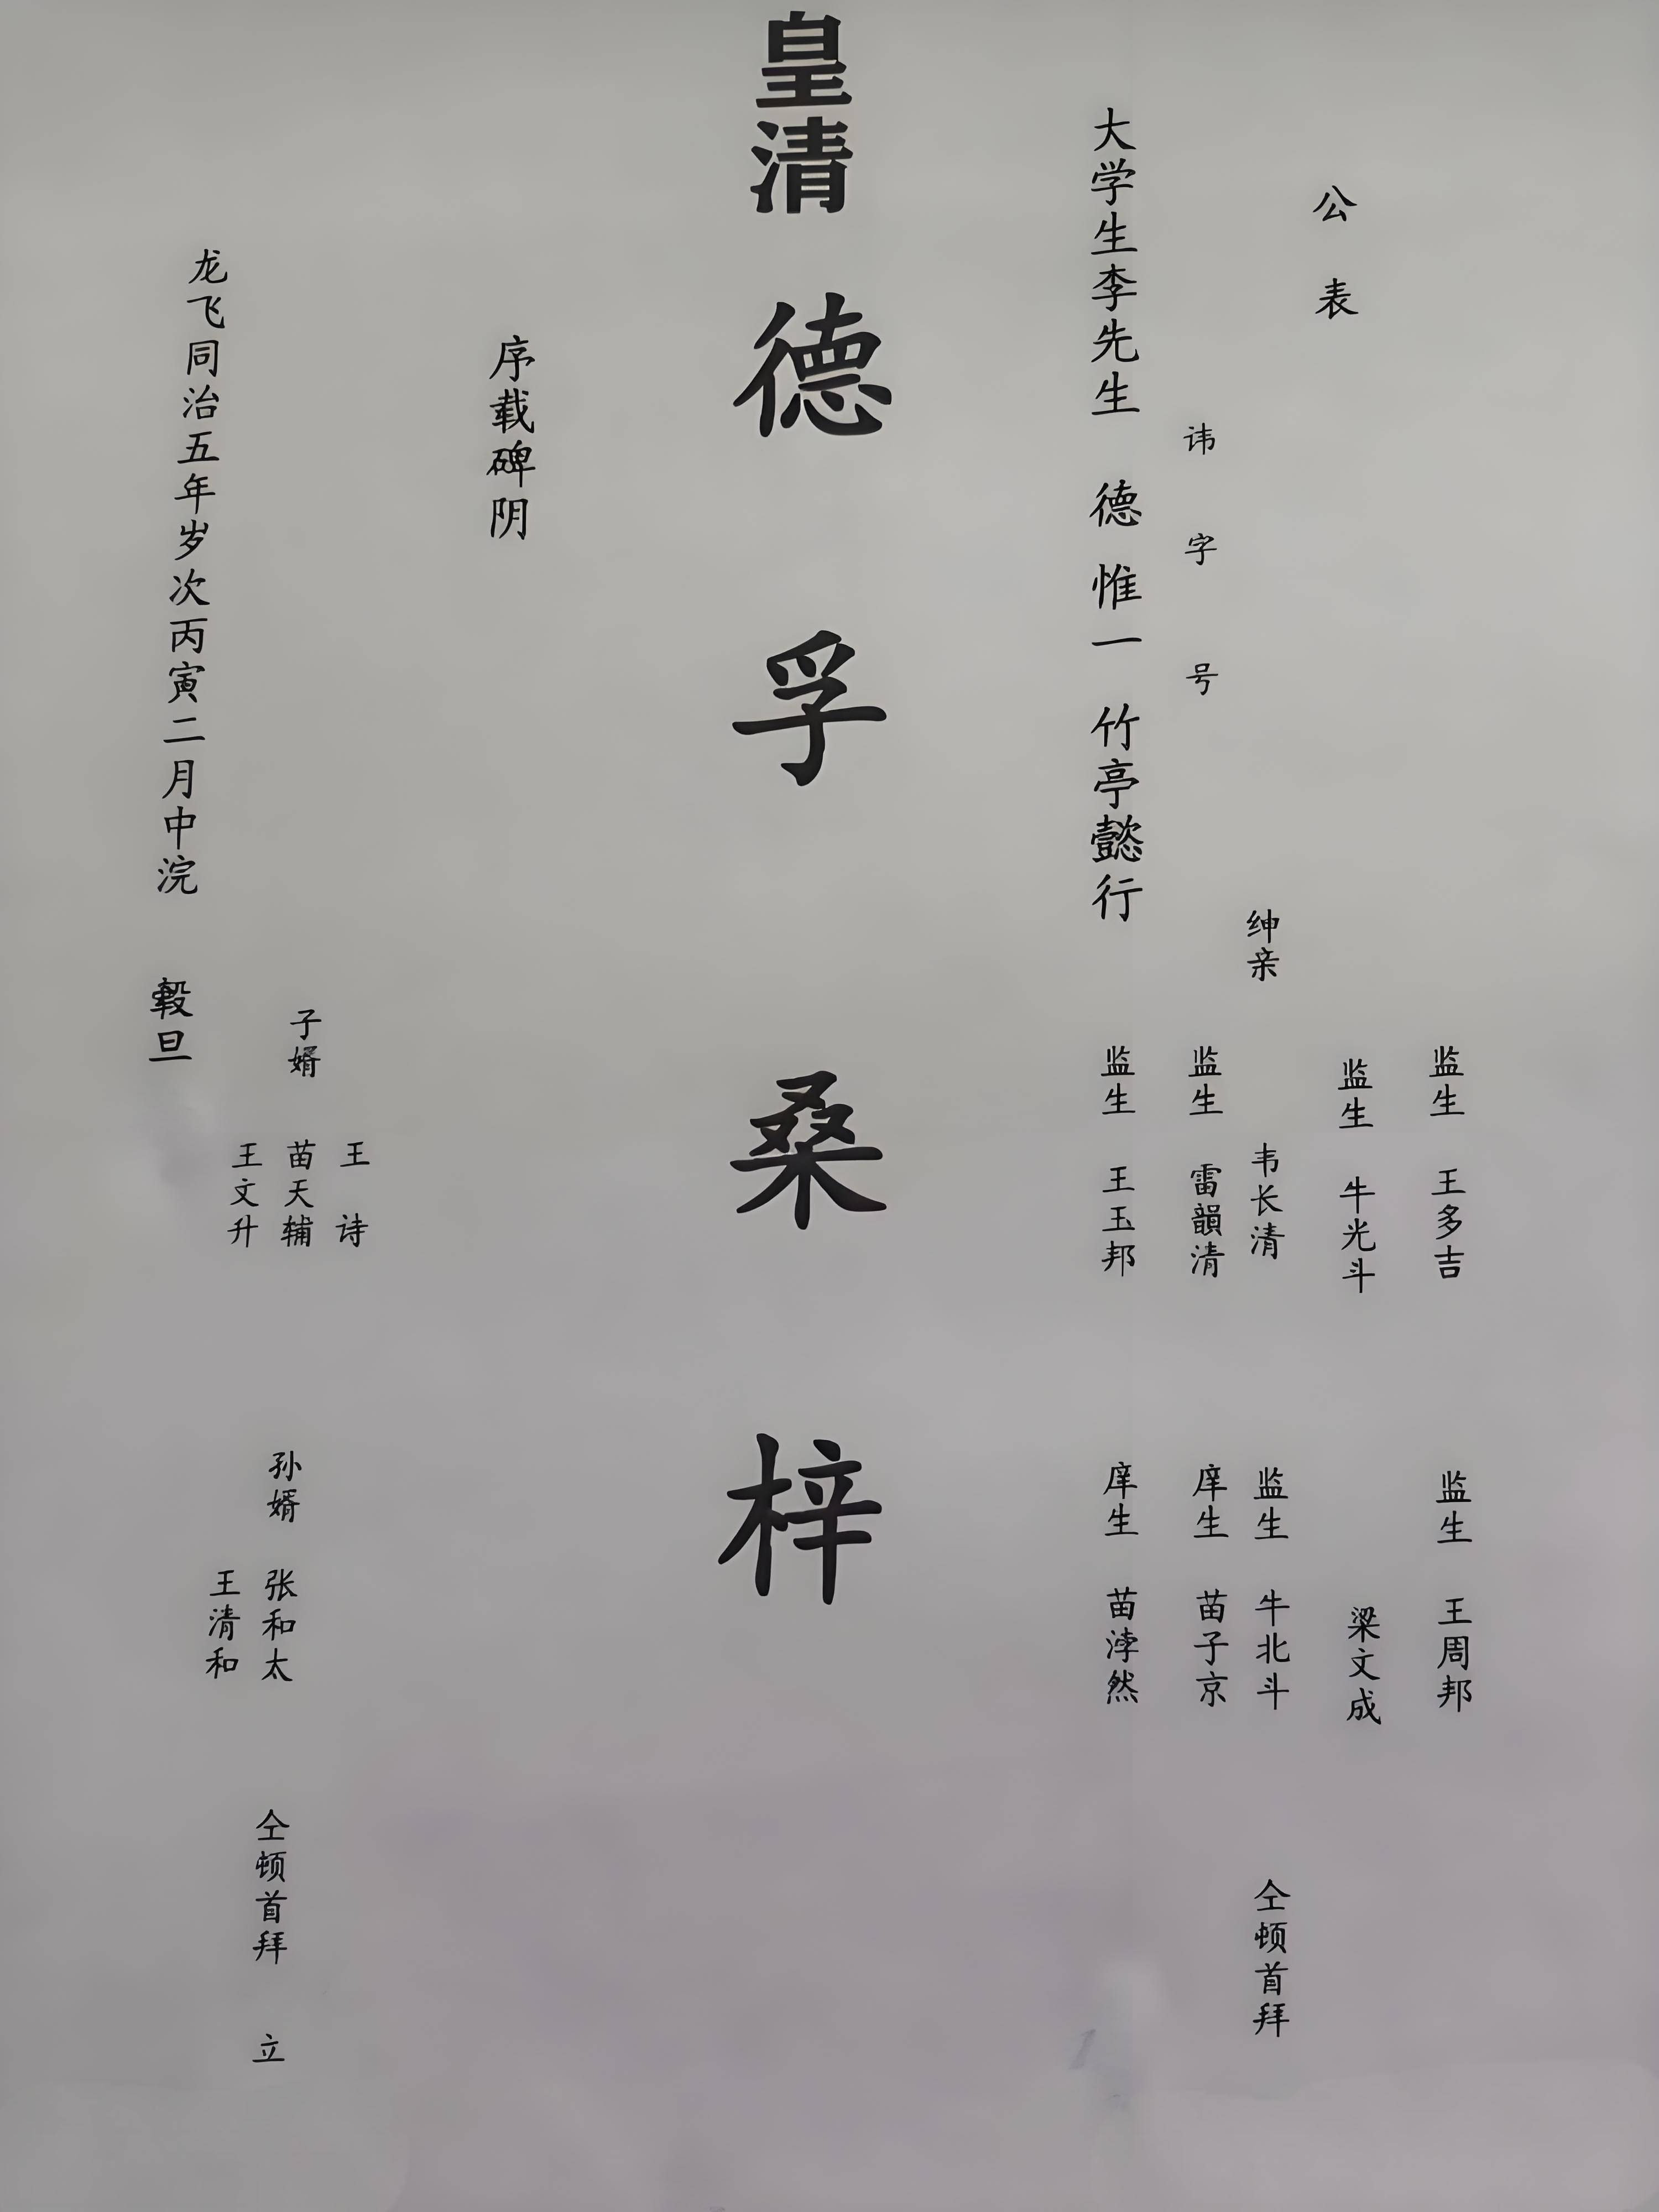 公表
大学生李先生 德 惟一 竹亭懿行
讳 字 号
绅亲
监生 王多吉
监生 牛光斗
韦长清
监生 雷韻清
监生 王玉邦
监生 王周邦
梁文成
监生 牛北斗
庠生 苗子京
庠生 苗浡然
仝顿首拜
皇清
德孚桑梓
序载碑阴
子婿
王 诗
苗天辅
王文升
孙婿
张和太
王清和
仝顿首拜 立
龙飞同治五年岁次丙寅二月中浣 毂旦